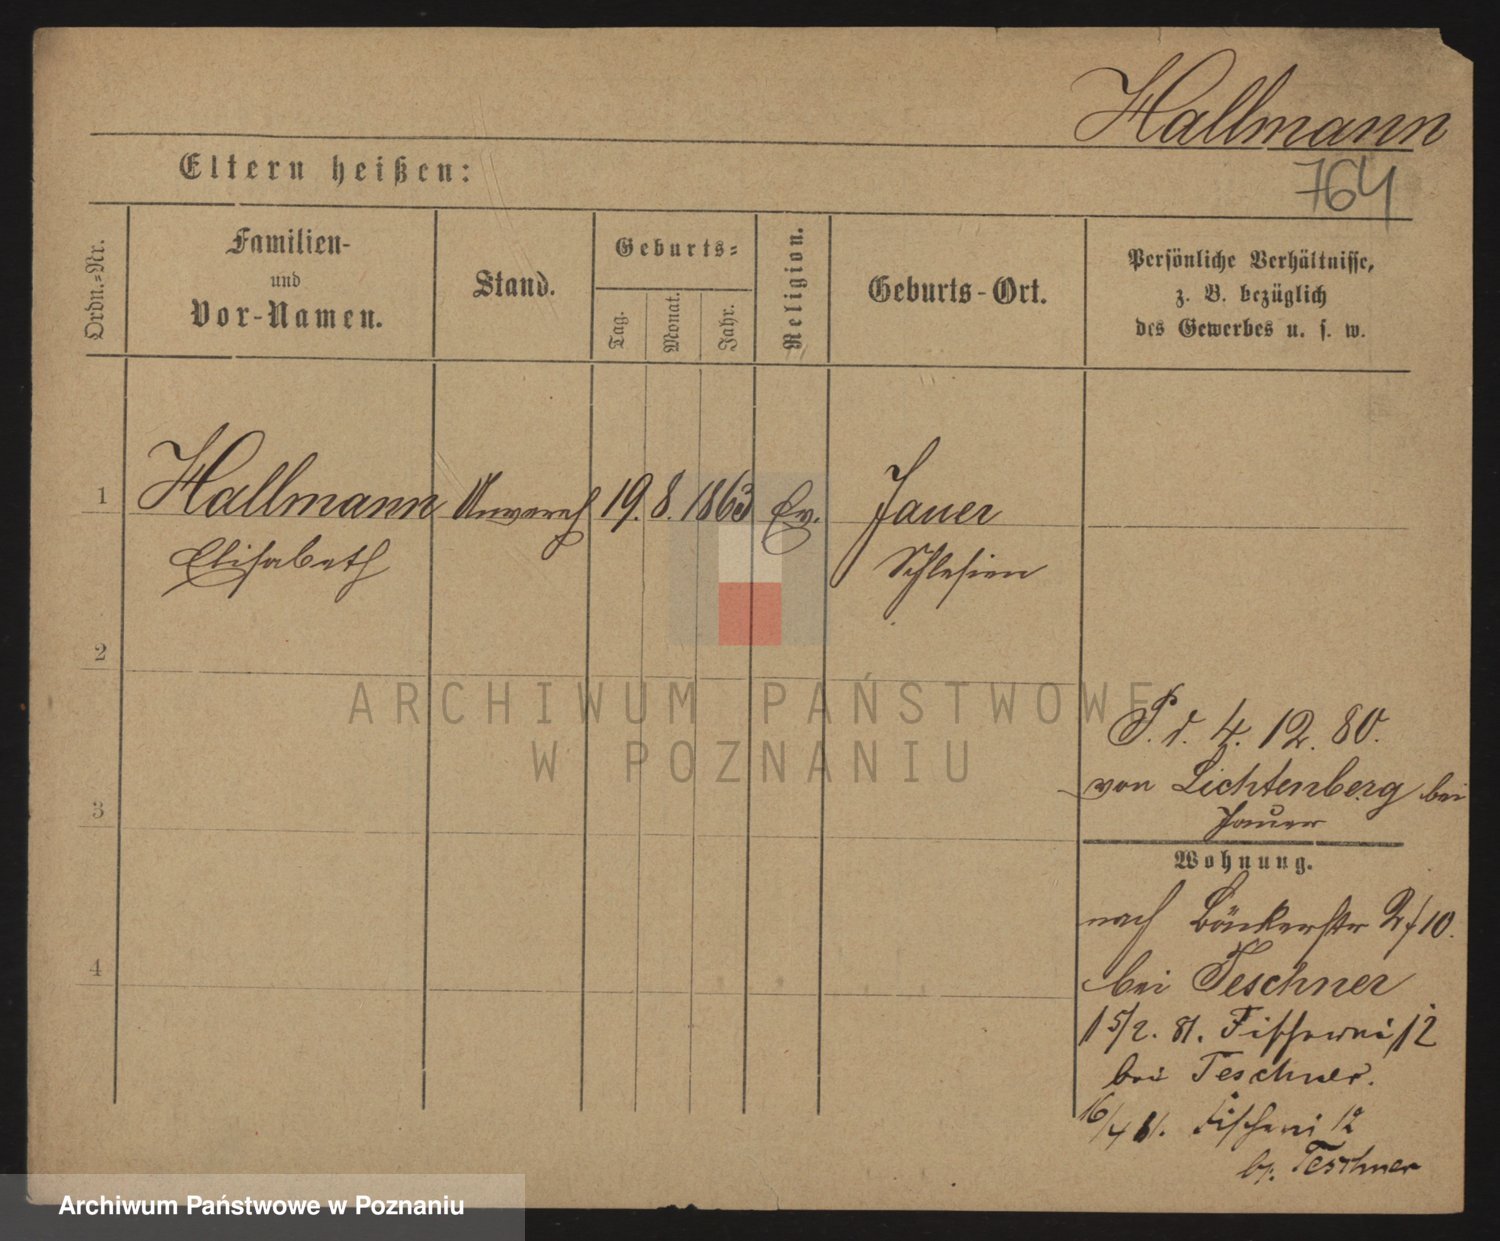 Hallmann
764
Eltern heißen:
Ordn.-Nr.
Familien-
und
Vor-Namen.
Stand.
Geburts-
Tag.
Monat.
Jahr.
Religion.
Geburts-Ort.
Persönliche Verhältnisse,
z. B. bezüglich
des Gewerbes u. s. w.
1
Hallmann
Unvereh
19. 8. 1863
Ev.
Jauer
Elisabeth
Schlesien
2
3
4
P. d. 4. 12. 80.
von Lichtenberg bei
Jauer
Wohnung.
nach Bäckerstr 2/10.
bei Teschner
15/2. 81. Fischerei 12
bei Teschner.
16/4 81. Fischerei 12
b. Teschner
ARCHIWUM PAŃSTWOWE
W POZNANIU
Archiwum Państwowe w Poznaniu